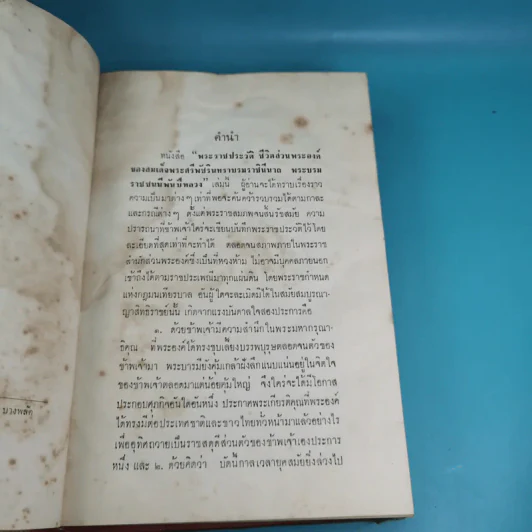 คำนำ
หนังสือ "พระราชประวัติ ชีวิตส่วนพระองค์
ของสมเด็จพระศรีพัชรินทราบรมราชินีนาถ พระบรม
ราชชนนีพันปีหลวง" เล่มนี้ ผู้อ่านจะได้ทราบเรื่องราว
ความเป็นมาต่างๆ เท่าที่พอจะค้นคว้ารวบรวมได้ตามกาละ
และกรณีต่างๆ ตั้งแต่พระราชสมภพจนสิ้นรัชสมัย ความ
ปรารถนาที่ข้าพเจ้าใคร่จะเขียนบันทึกพระราชประวัติไว้โดย
ละเอียดที่สุดเท่าที่จะทำได้ ตลอดจนสภาพภายในพระราช
ตำหนักส่วนพระองค์ซึ่งเป็นที่หวงห้าม ไม่อาจมีบุคคลภายนอก
เข้าถึงได้ตามราชประเพณีมาทุกแผ่นดิน โดยพระราชกำหนด
แห่งกฎมนเทียรบาล อันผู้ใดจะละเมิดมิได้ในสมัยสมบูรณา-
ญาสิทธิราชย์นั้น เกิดจากแรงบันดาลใจสองประการคือ
๑. ด้วยข้าพเจ้ามีความสำนึกในพระมหากรุณา-
ธิคุณ ที่พระองค์ได้ทรงชุบเลี้ยงบรรพบุรุษตลอดจนตัวของ
ข้าพเจ้ามา พระบารมียังคุ้มเกล้าฝังลึกแนบแน่นอยู่ในจิตใจ
ของข้าพเจ้าตลอดมาแต่น้อยคุ้มใหญ่ จึงใคร่จะได้มีโอกาส
ประกอบศุภกิจอันใดอันหนึ่ง ประกาศพระเกียรติคุณที่พระองค์
ได้ทรงมีต่อประเทศชาติและชาวไทยทั่วหน้ามาแล้วอย่างไร
เพื่ออุทิศถวายเป็นราชสดุดีส่วนตัวของข้าพเจ้าเองประการ
หนึ่ง และ ๒. ด้วยคิดว่า บัดนี้กาลเวลายุคสมัยยิ่งล่วงไป
บางพลัด